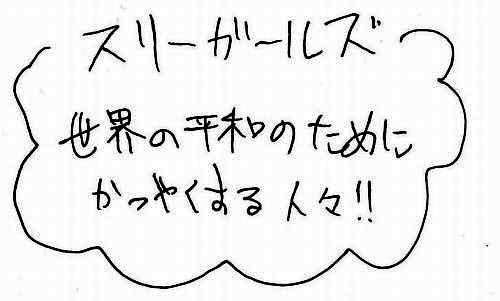 スリーガールズ
世界の平和のために
かつやくする人々!!